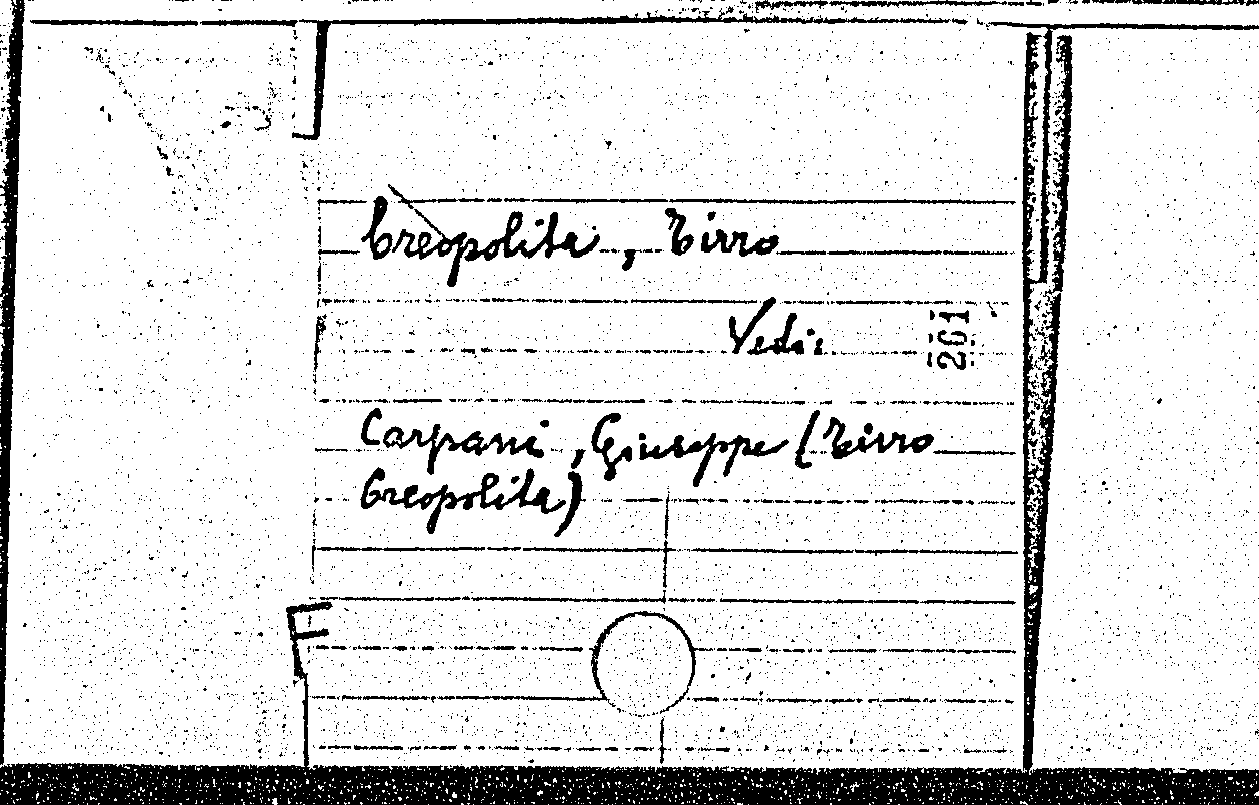 Creopolita, Tirro
Vedi:
201
Carpani, Giuseppe (Tirro
Creopolita)
F